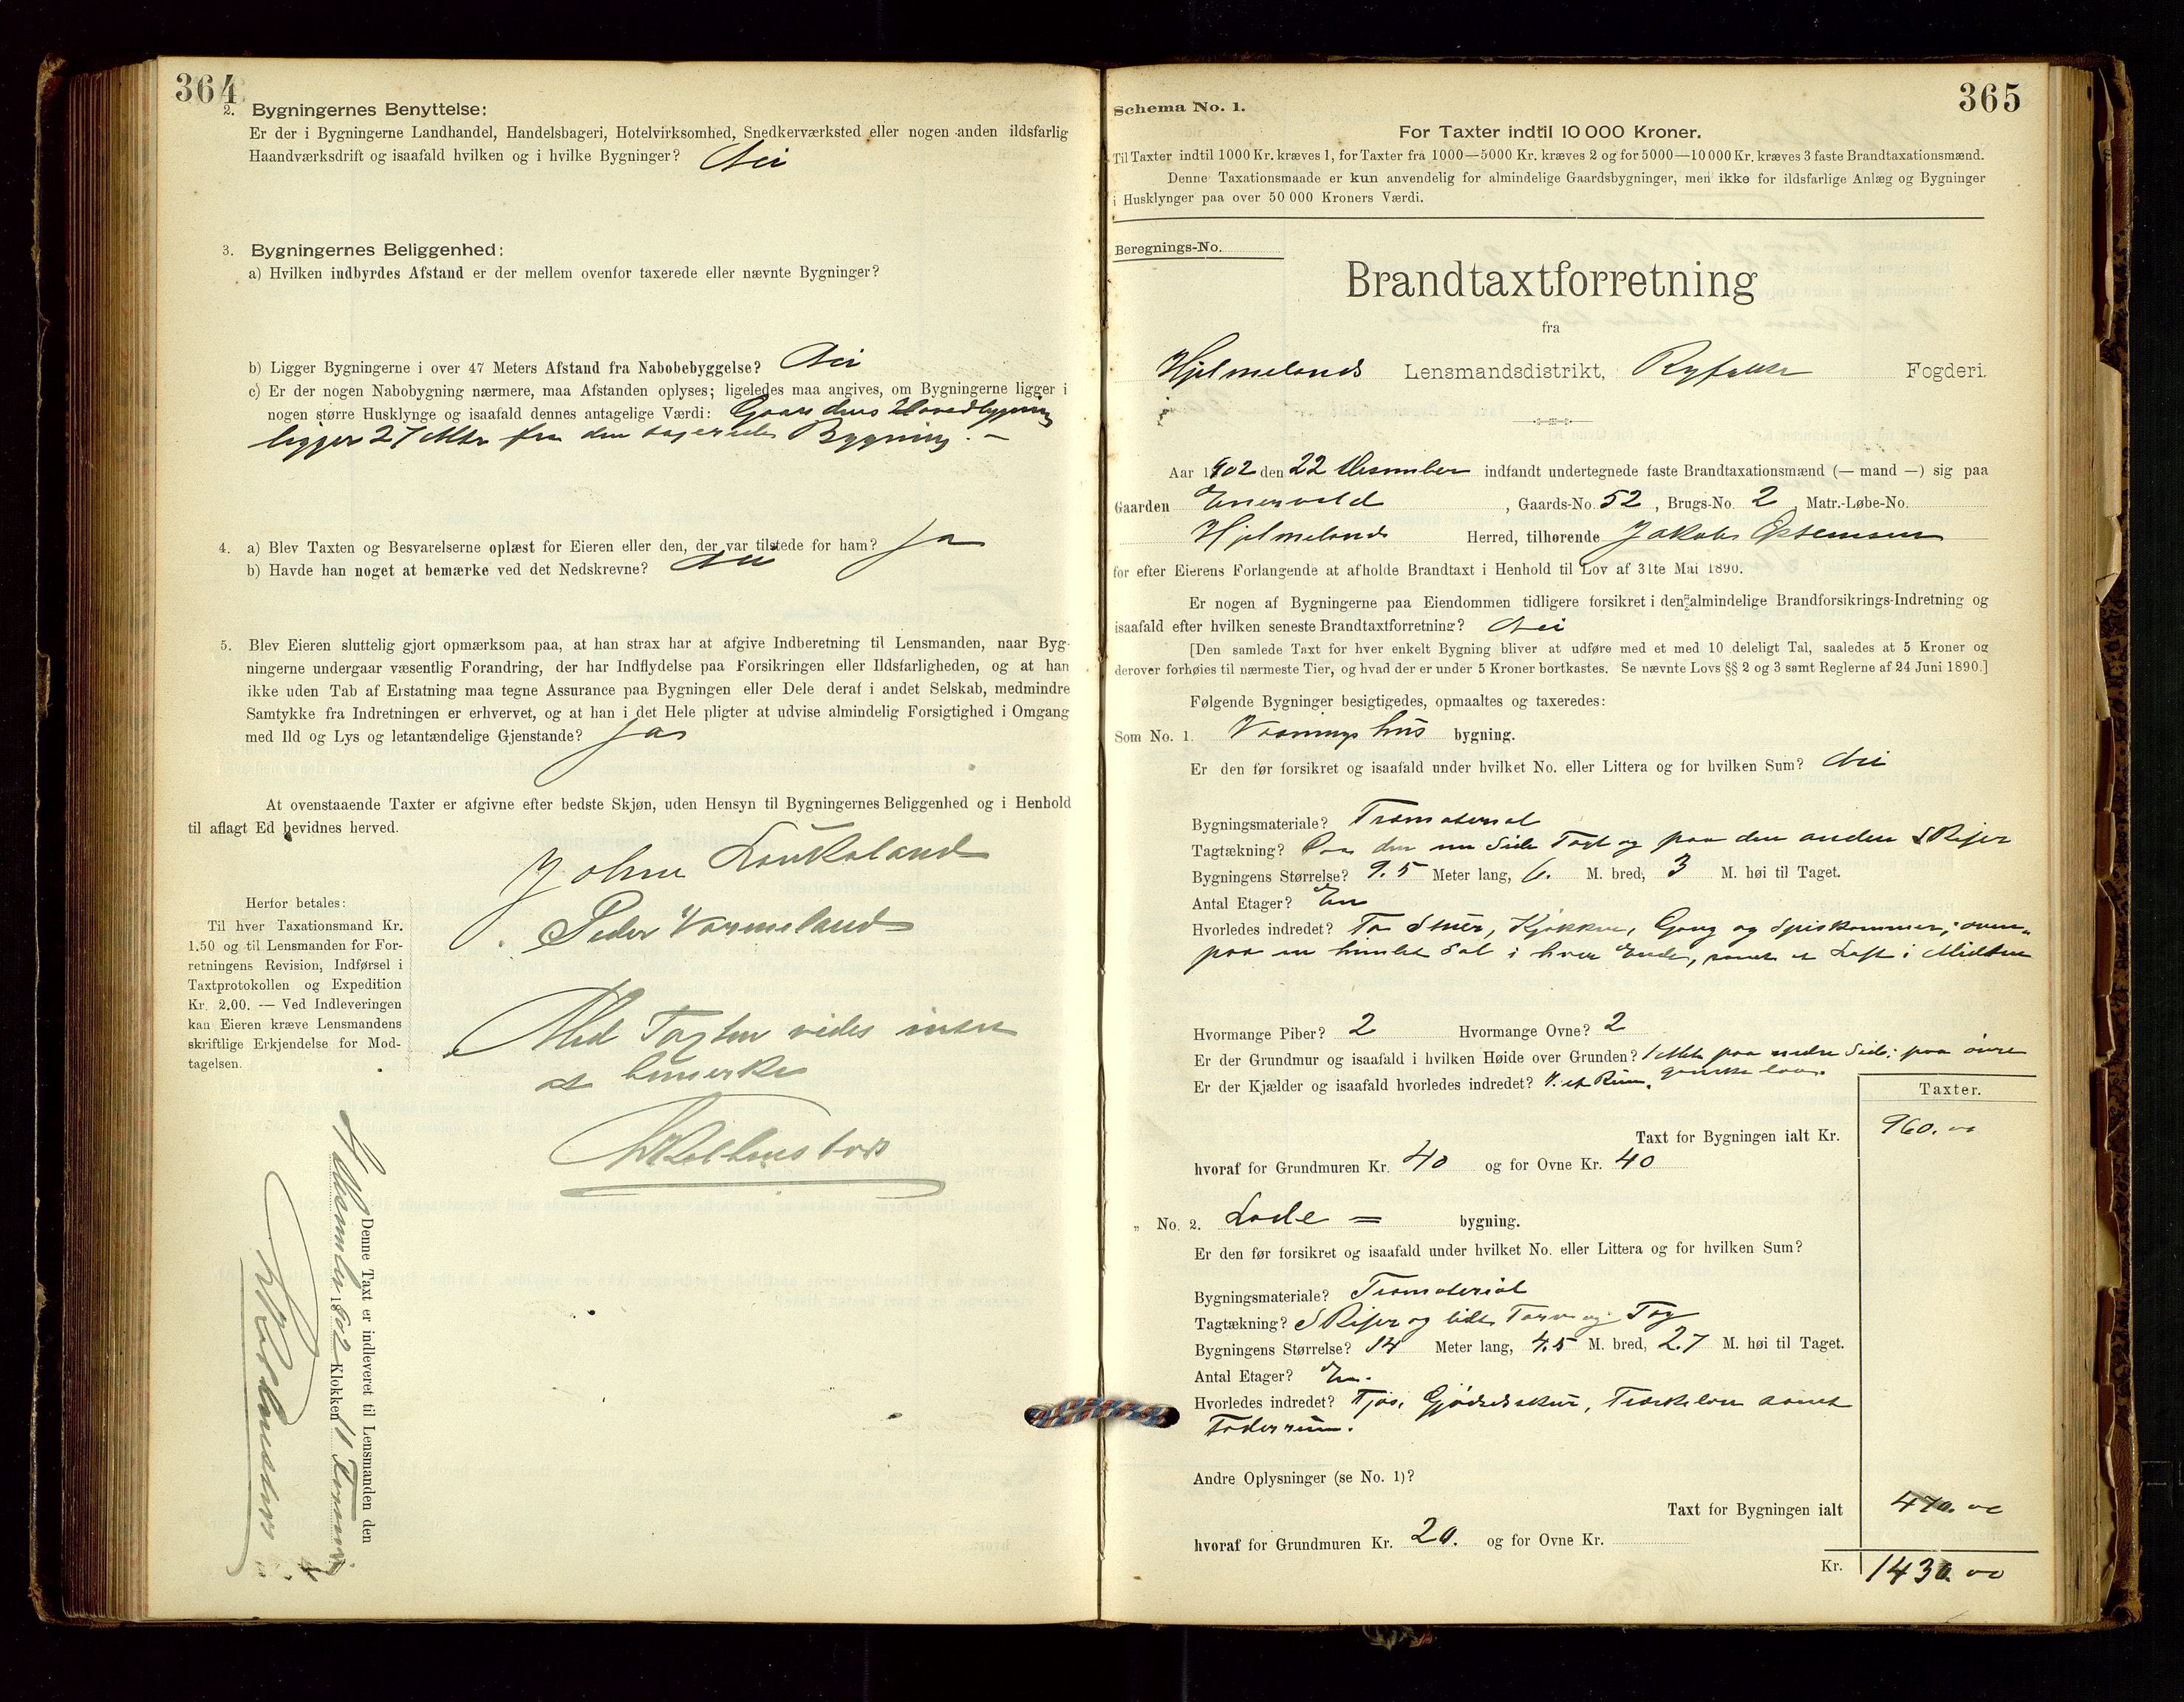 364
2. Bygningernes Benyttelse:
Er der i Bygningerne Landhandel, Handelsbageri, Hotelvirksomhed, Snedkerværksted eller nogen anden ildsfarlig
Haandværksdrift og isaafald hvilken og i hvilke Bygninger? Nei
3. Bygningernes Beliggenhed:
a) Hvilken indbyrdes Afstand er der mellem ovenfor taxerede eller nævnte Bygninger?
b) Ligger Bygningerne i over 47 Meters Afstand fra Nabobebyggelse? Nei
c) Er der nogen Nabobygning nærmere, maa Afstanden oplyses; ligeledes maa angives, om Bygningerne ligger i
nogen større Husklynge og isaafald dennes antagelige Værdi: Gaardens Hovedbygning
ligger 27 Mtr fra den taxerede Bygning. –
4. a) Blev Taxten og Besvarelserne oplæst for Eieren eller den, der var tilstede for ham? Ja
b) Havde han noget at bemærke ved det Nedskrevne? Nei
5. Blev Eieren sluttelig gjort opmærksom paa, at han strax har at afgive Indberetning til Lensmanden, naar Byg-
ningerne undergaar væsentlig Forandring, der har Indflydelse paa Forsikringen eller Ildsfarligheden, og at han
ikke uden Tab af Erstatning maa tegne Assurance paa Bygningen eller Dele deraf i andet Selskab, medmindre
Samtykke fra Indretningen er erhvervet, og at han i det Hele pligter at udvise almindelig Forsigtighed i Omgang
med Ild og Lys og letantændelige Gjenstande? Ja
At ovenstaaende Taxter er afgivne efter bedste Skjøn, uden Hensyn til Bygningernes Beliggenhed og i Henhold
til aflagt Ed bevidnes herved.
Peder Vormeland
Herfor betales:
Til hver Taxationsmand Kr.
1.50 og til Lensmanden for For-
retningens Revision, Indførsel i
Taxtprotokollen og Expedition
Kr. 2.00. — Ved Indleveringen
kan Eieren kræve Lensmandens
skriftlige Erkjendelse for Mod-
tagelsen.
Med Taxten vides intet
at bemerke
Denne Taxt er indleveret til Lensmanden den
1902 Klokken 11 Formi
365
Schema No. 1.
For Taxter indtil 10 000 Kroner.
Til Taxter indtil 1000 Kr. kræves 1, for Taxter fra 1000—5000 Kr. kræves 2 og for 5000—10 000 Kr. kræves 3 faste Brandtaxationsmænd.
Denne Taxationsmaade er kun anvendelig for almindelige Gaardsbygninger, men ikke for ildsfarlige Anlæg og Bygninger
i Husklynger paa over 50 000 Kroners Værdi.
Beregnings-No.
Brandtaxtforretning
fra
Hjelmelands Lensmandsdistrikt, Ryfylke Fogderi.
Aar 1902 den 22 indfandt undertegnede faste Brandtaxationsmænd (— mand —) sig paa
Gaarden , Gaards-No. 52, Brugs-No. 2 Matr.-Løbe-No.
Hjelmelands Herred, tilhørende Jakob
for efter Eierens Forlangende at afholde Brandtaxt i Henhold til Lov af 31te Mai 1890.
Er nogen af Bygningerne paa Eiendommen tidligere forsikret i den almindelige Brandforsikrings-Indretning og
isaafald efter hvilken seneste Brandtaxtforretning? Nei
[Den samlede Taxt for hver enkelt Bygning bliver at udføre med et med 10 deleligt Tal, saaledes at 5 Kroner og
derover forhøies til nærmeste Tier, og hvad der er under 5 Kroner bortkastes. Se nævnte Lovs §§ 2 og 3 samt Reglerne af 24 Juni 1890.]
Følgende Bygninger besigtigedes, opmaaltes og taxeredes:
Som No. 1. Vaaningshus bygning.
Er den før forsikret og isaafald under hvilket No. eller Littera og for hvilken Sum? Nei
Bygningsmateriale? Træmaterial
Tagtækning? Paa den ene Side Tagt og paa den anden Skifer
Bygningens Størrelse? 9.5 Meter lang, 6. M. bred, 3 M. høi til Taget.
Antal Etager? En
Hvorledes indredet? To Stuer, Kjøkken, Gang og Spiskammer; oven-
paa en himlet Sal i hver Ende, samt et Loft i Midten
Hvormange Piber? 2 Hvormange Ovne? 2
Er der Grundmur og isaafald i hvilken Høide over Grunden? 1 Mtr paa nedre Side; paa øvre
ganske lav.
Er der Kjælder og isaafald hvorledes indredet? et Rum.
Taxter.
Taxt for Bygningen ialt Kr. 960.00
hvoraf for Grundmuren Kr. 40 og for Ovne Kr. 40
„ No. 2. Lade = bygning.
Er den før forsikret og isaafald under hvilket No. eller Littera og for hvilken Sum?
Bygningsmateriale? Træmaterial
Tagtækning? Skifer og lidt Torv og
Bygningens Størrelse? 14 Meter lang, 4.5 M. bred, 2.7 M. høi til Taget.
Antal Etager? En.
Hvorledes indredet? Fjøs, Gjødselskur, Træskelaae samt
Foderrum.
Andre Oplysninger (se No. 1)?
Taxt for Bygningen ialt 470.00
hvoraf for Grundmuren Kr. 20. og for Ovne Kr.
Kr. 1430.00